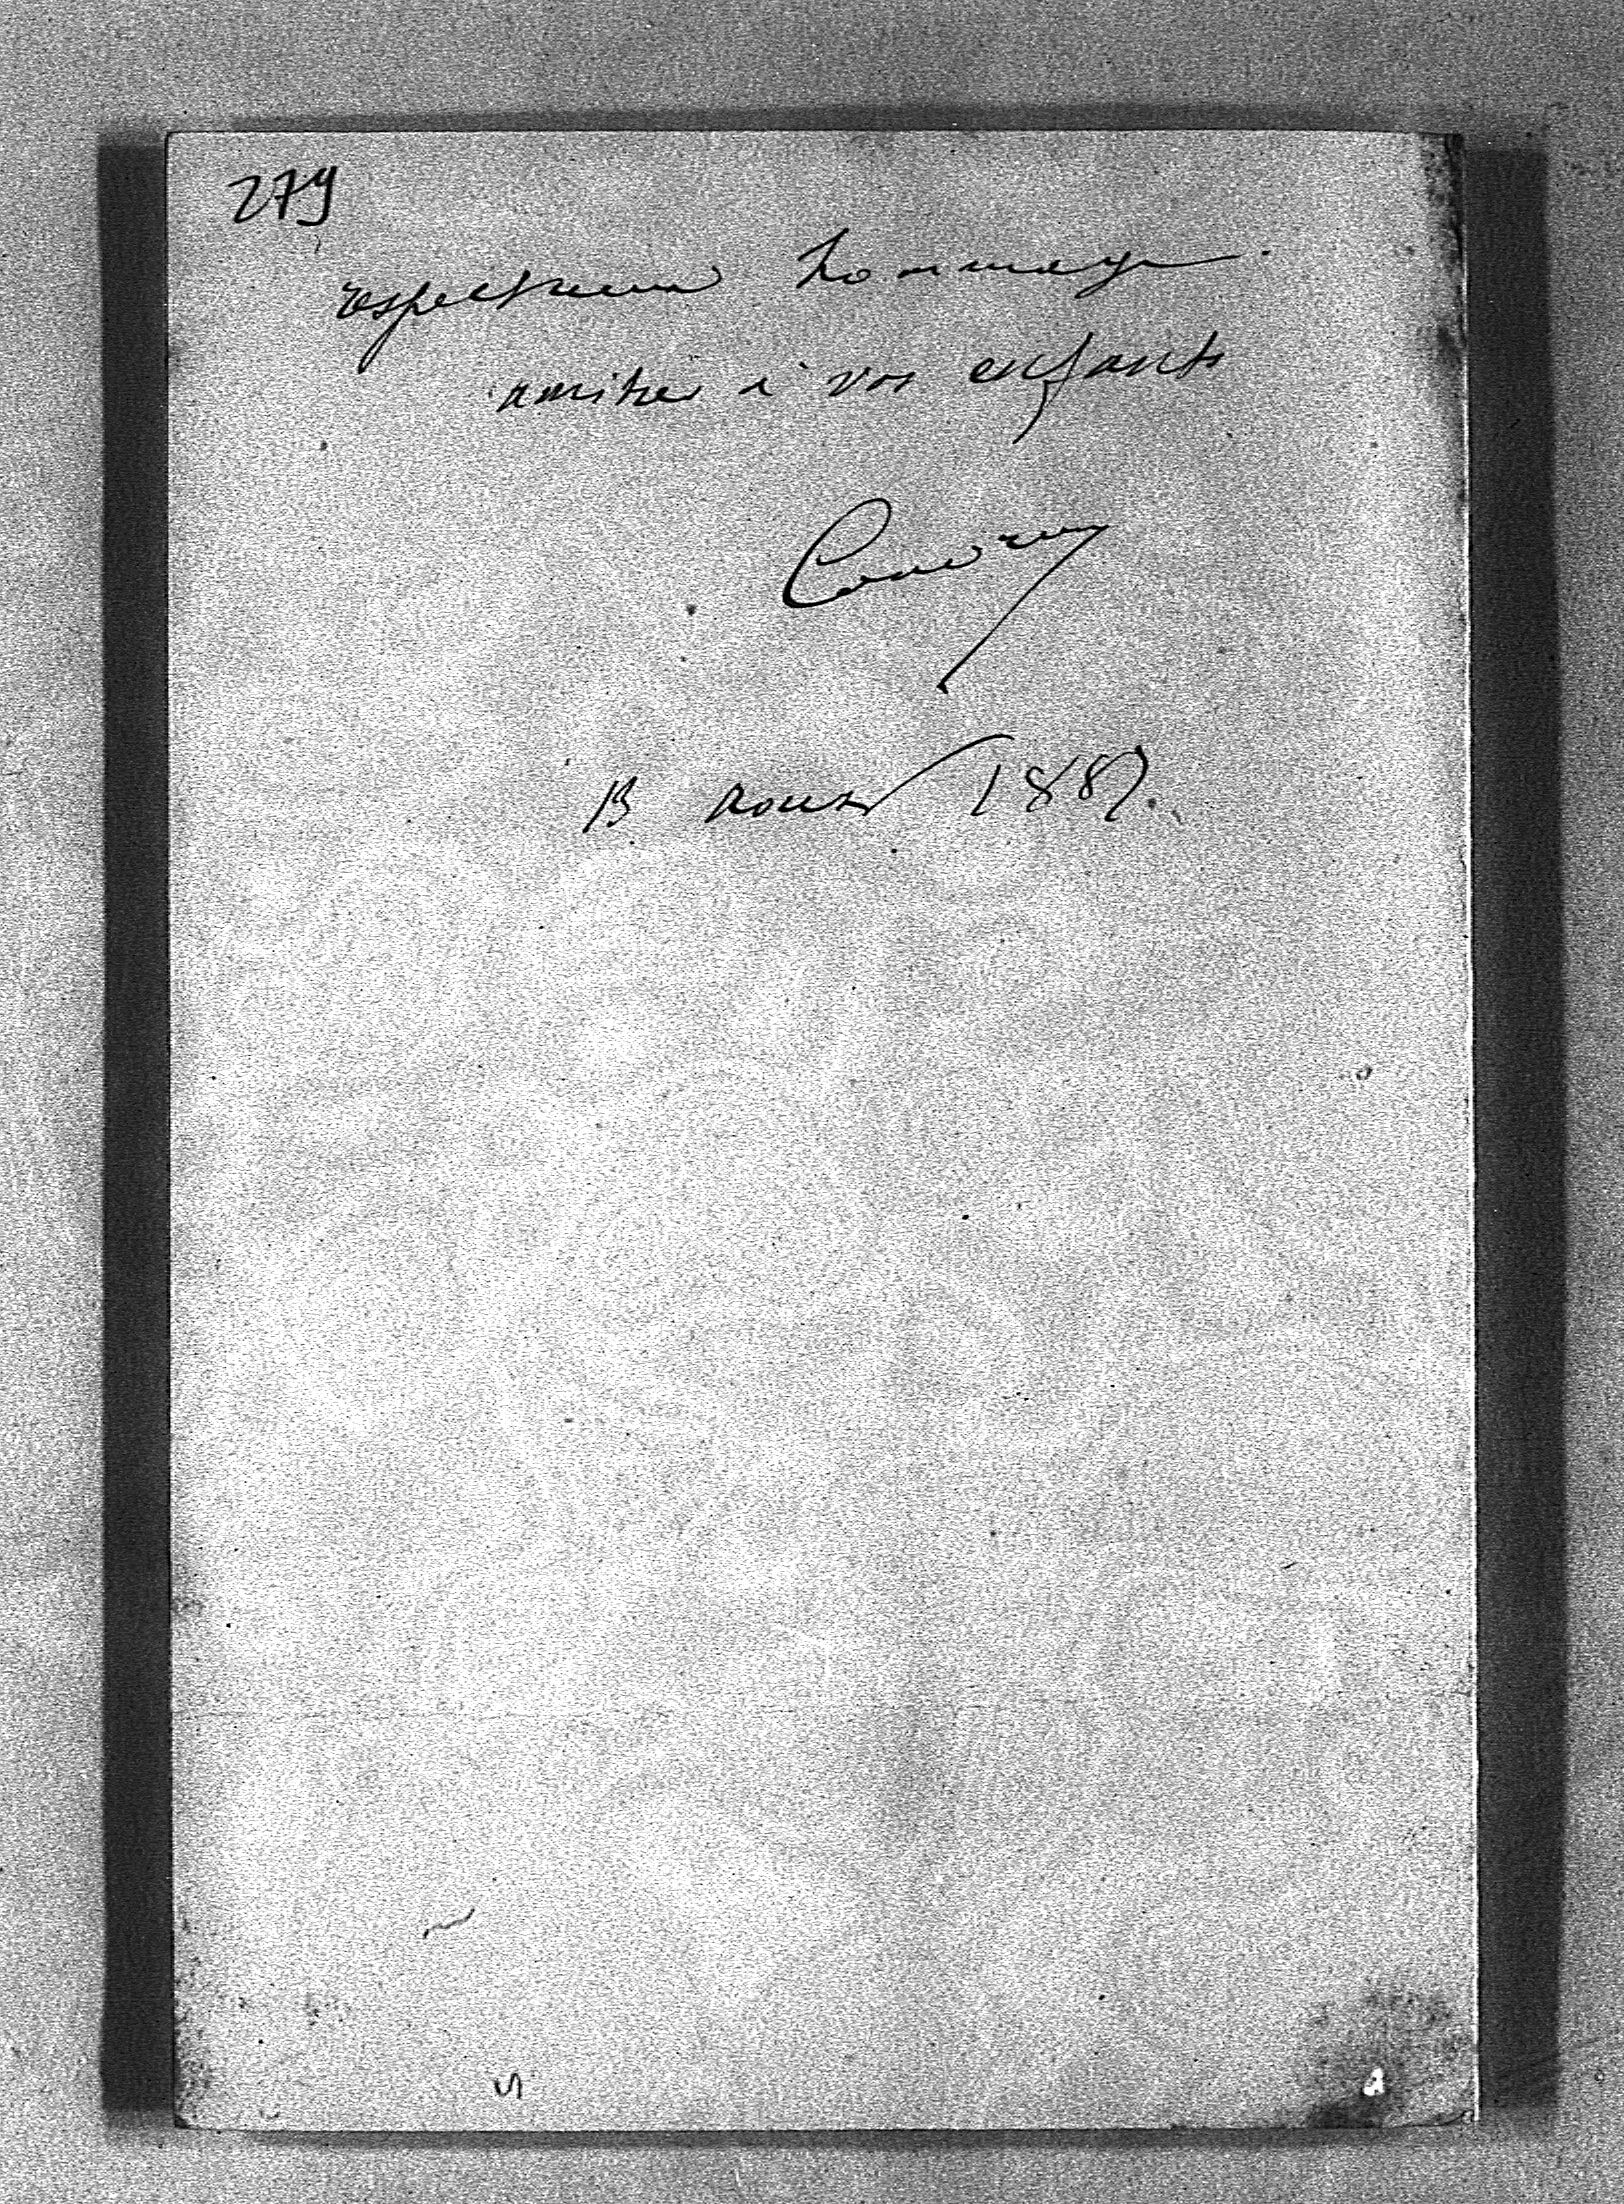 279
respectueux hommages.
amitiés à vos enfants
13 aout 1887.